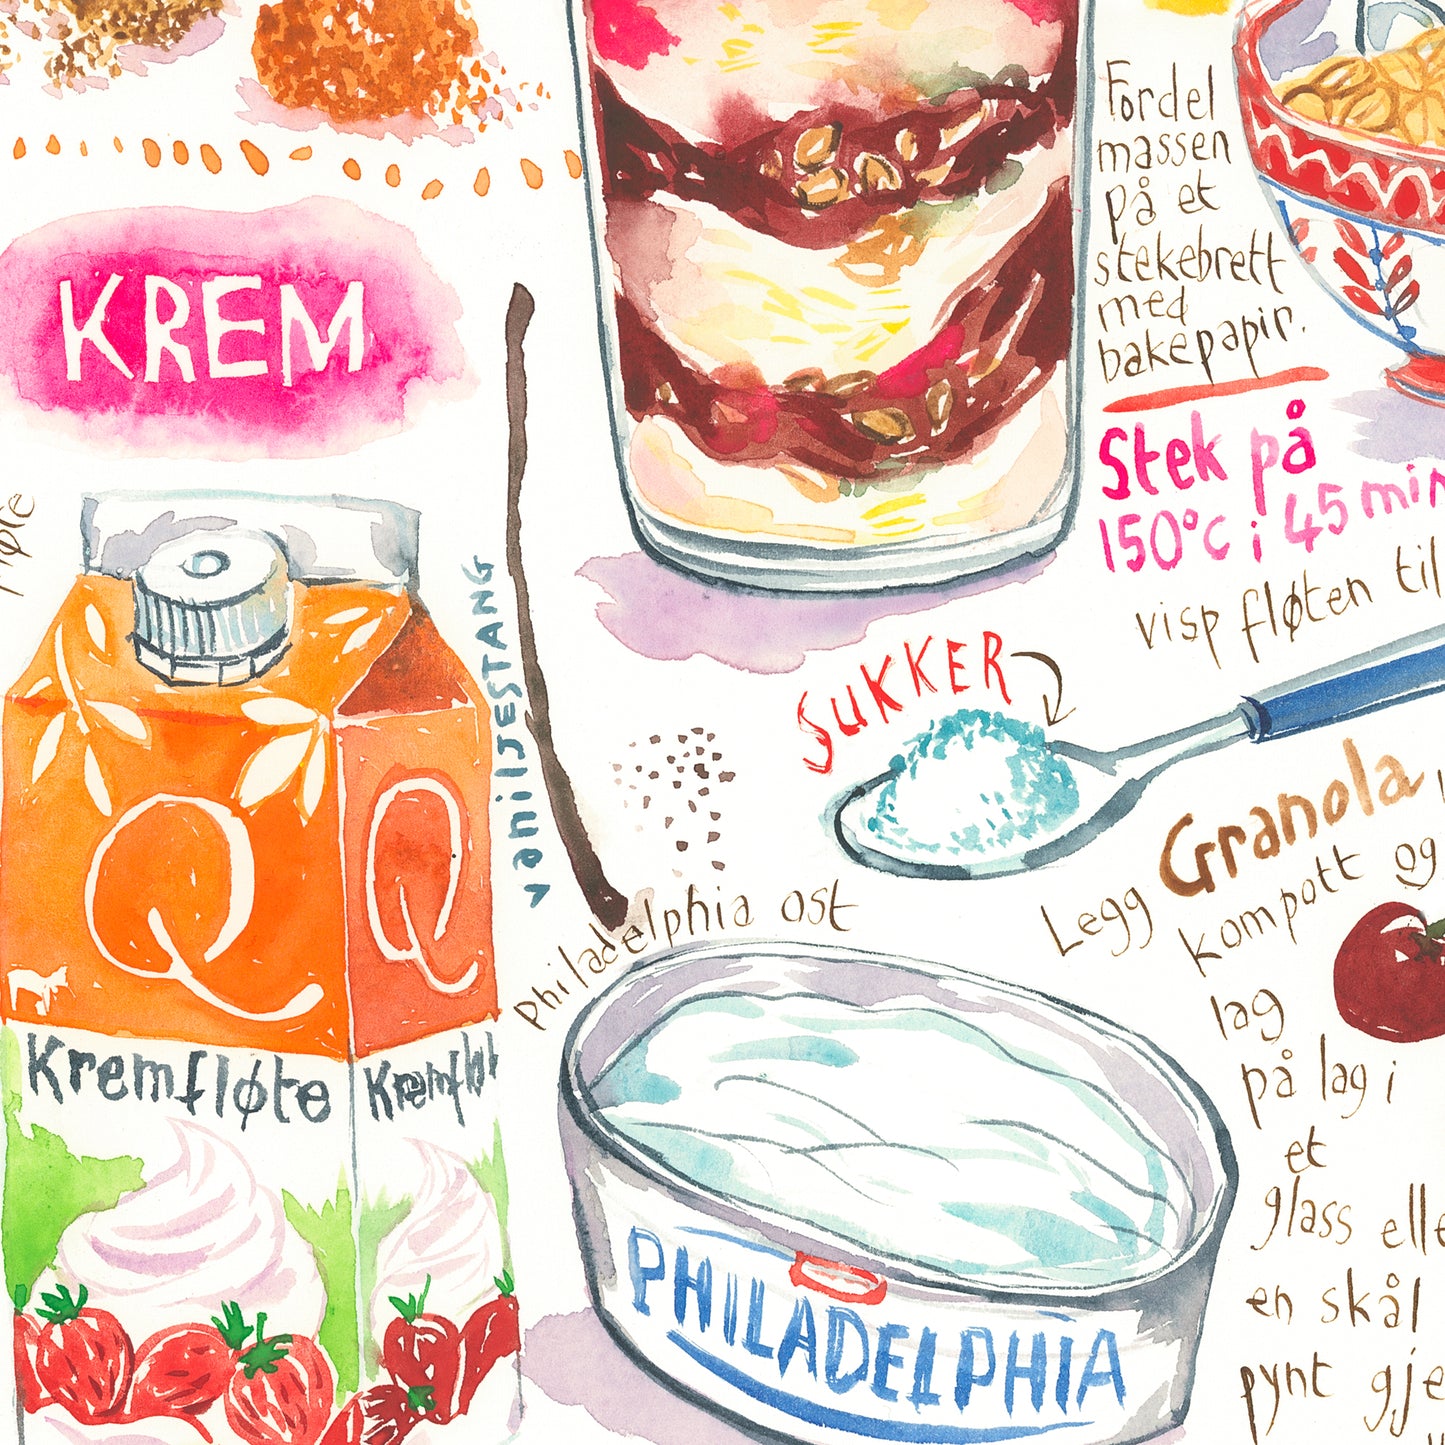 Fordel
massen
på et
stekebrett
med
bakepapir.
KREM
Stek på
150°C i 45 min
visp fløten til
VANILJESTANG
SUKKER
Granola,
Legg
kompott og
Philadelphia ost
lag
på lag i
et
glass elle
en skål
pynt gje
Q
Q
Kremfløte
Kremflø
PHILADELPHIA